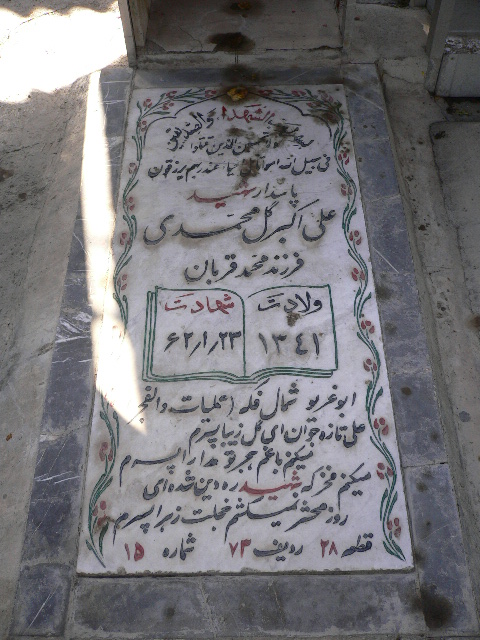 الشهداء و الصدیقین
و لا تحسبن الذین قتلوا
فی سبیل الله امواتا بل احیاء عند ربهم یرزقون
پاسدار شهید
علی اکبر گل محمدی
فرزند محمد قربان
ولادت
۱۳۴۲
شهادت
۶۲/۱/۲۳
ابوغریب شمال فکه (عملیات والفجر
علی تازه جوان ای گل زیبا پسرم
میکنم با غم هجر تو مدارا پسرم
میکنم فخر که شهید ره دین شده ای
روز محشر نمیکشم خجلت زهرا پسرم
قطعه ۲۸ ردیف ۷۳ شماره ۱۵